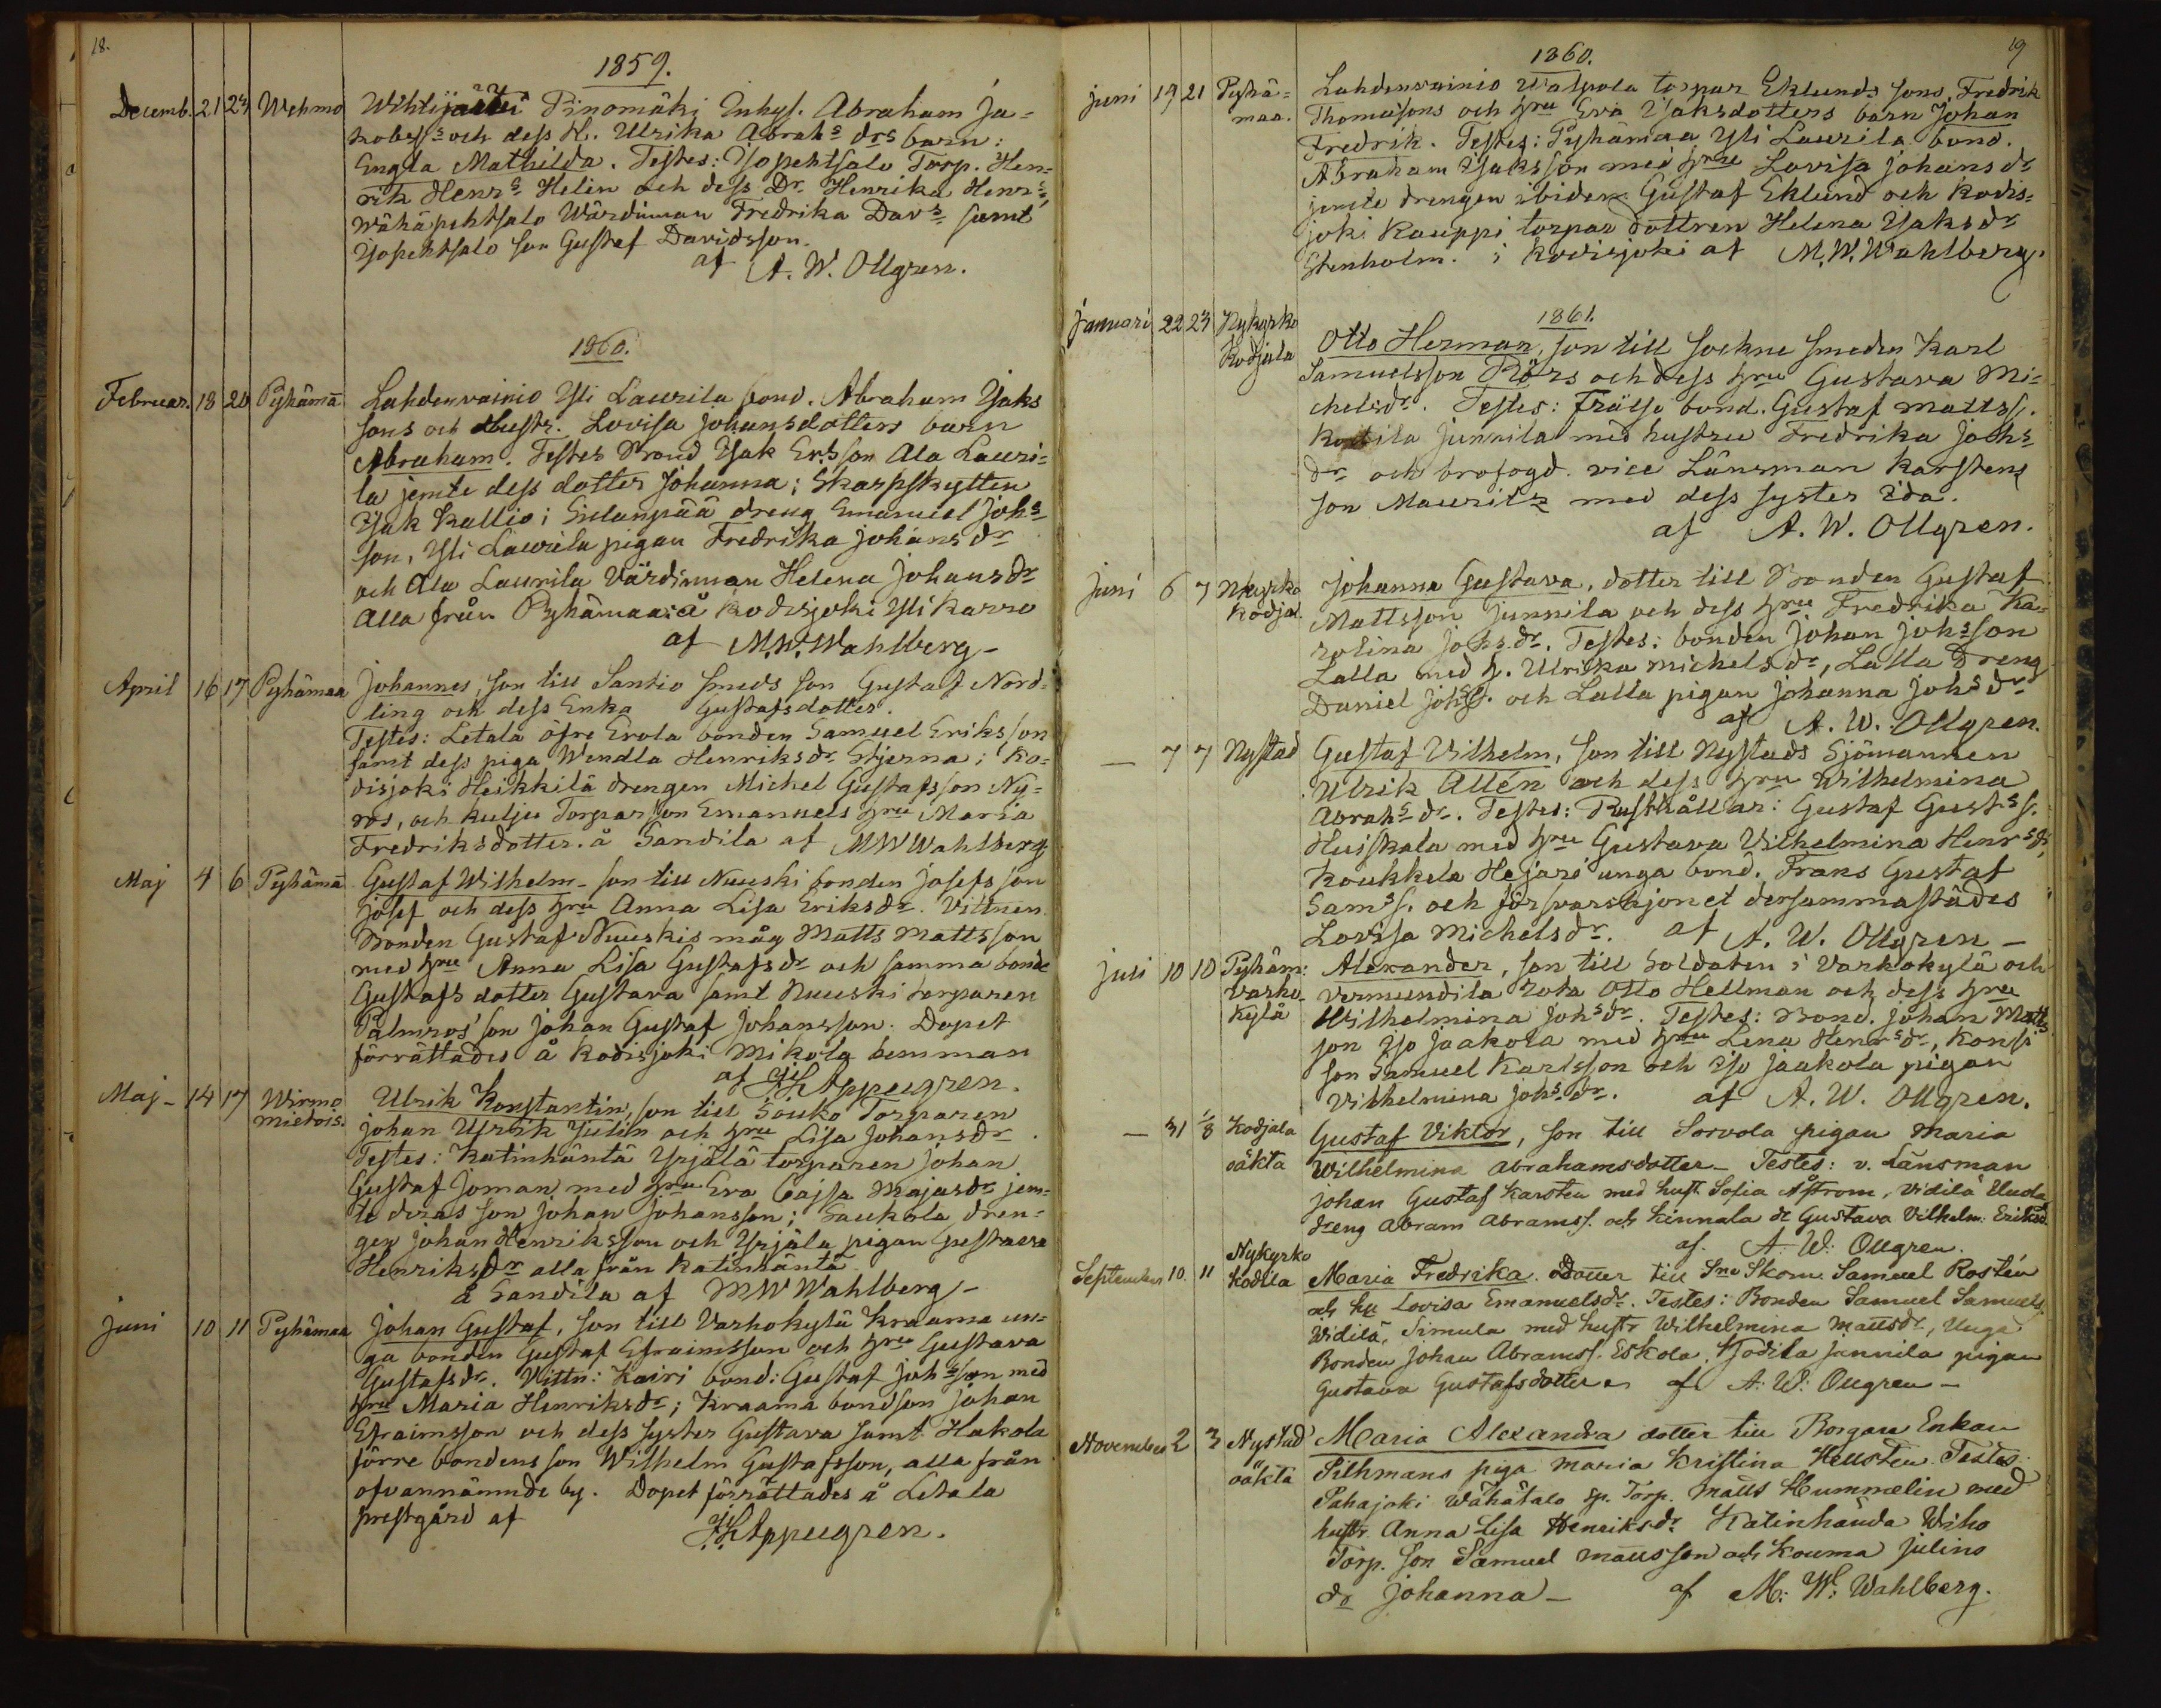 18.
1859.
Decemb. 21 23 Wehmo Wihtijärvi Pinomäki Inhys. Abraham Ja-
kobss. och dess H. Ulrika Abrahs drs barn:
Engla Mathilda. Testes: Isopehtsalo Torp. Hen-
rik Henrs Helin och dess Dr. Henrika Henrs,
Wähäpehtsalo Wärdinnan Fredrika Davs samt
Isopehtsalo son Gustaf Davidsson.
af A. W. Ollgren.
1860.
Februar. 18 20 Pyhämä Lahdenvainio Yli Laurila bond. Abraham Isaks
sons och Hustr. Lovisa Johansdotters barn
Abraham. Testes Brand Isak Ersson Ala Lauri-
la jemte dess dotter Johanna; Skarpskytten
Isak Kallio; dreng Emanuel Johs
son, Yli Laurila pigan Fredrika Johans dr
och Ala Laurila Värdinnan Helena Johansdr
alla från Pyhämaa: å Kodisjoki Yli Karro
af M. W. Wahlberg -
April 16 17 Pyhämaa Johannes, son till Santio smeds son Gustaf Nord-
ling och dess Enka Gustafsdotter.
Testes: Letala öfre Erola bonden Samuel Eriksson
samt dess piga Wendla Henriksdr Stjerna; Ko-
disjoki Heikkilä drengen Michel Gustafsson Ny-
ros, och Kulju Torpar son Emanuels hru Maria
Fredriksdotter. å Sandila af MWWahlberg
Maj 4 6 Pyhämä Gustaf Wilhelm - son till Nuuski bonden Josefs son
Josef och dess hru Anna Lisa Eriksdr. Vittnen
Bonden Gustaf Nuuskis måg Matts Mattsson
med hru Anna Lisa Gustafsdr och samma bonde
Gustafs dotter Gustava samt Nuuski torparen
Palmros' son Johan Gustaf Johansson. Dopet
förrättades å Kodisjoki Mikola hemman
af Appelgren.
Maj - 14 17 Wirmo Ulrik Konstantin, son till Souko Torparen
Mietois. Johan Ulrik Julin och hru Lisa Johansdr
Testes: Katinhäntä Yrjälä torparen Johan
Gustaf Joman med hru Eva Cajsa Majasdr jem-
te deras son Johan Johansson; Saukola dren-
gen Johan Henriksson och Yrjälä pigan Gustava
Henriksdr alla från Katinhäntä
å Sandila af MWWahlberg -
Juni 10 11 Pyhämaa Johan Gustaf, son till Varhokylä Kraama un-
ga bonden Gustaf Efraimsson och hru Gustava
Gustafsdr. Vittn: Kairi bond: Gustaf Johsson med
hru Maria Henriksdr; Kraama bondson Johan
Efraimsson och dess syster Gustava samt Hakola
förre bondens son Wilhelm Gustafsson, alla från
ofvannämnde by. Dopet förrättades å Letala
prestgård af Appelgren.
19
1860.
Juni 19 21 Pyhä- Lahdenvainio Walpola torpar Eklunds sons, Fredrik
maa. Thomassons och hru Eva Isaksdotters barn Johan
Fredrik. Testes: Pyhämaa Yli Laurila bond.
Abraham Isaksson med hru Lovisa Johansdr
jemte drengen ibidem Gustaf Eklund och Kodis-
joki Kauppi torpar dottren Helena Isaksdr
Stenholm. i Kodisjoki af M. W. Wahlberg.
1861.
Januari 22 23 Nykyrko Otto Herman, son till sockne smeden Karl
Kodjala Samuelsson Rörs och dess hru Gustava Mi-
chelsdr. Testes: Frälse bond. Gustaf Mattss.
Kodila Junnila med hustru Fredrika Johs
dr och brofogd. vice Länsman Karstens
son Mauritz med dess syster Ida.
af A. W. Ollgren.
Juni 6 7 Nkyrko Johanna Gustava, dotter till Bonden Gustaf
Kodjal. Mattsson Junnila och dess hru Fredrika Ka-
rolina Johsdr. Testes: bonden Johan Johsson
Lalla med h. Ulrika Michelsdr, Lalla Dreng
Daniel Johss. och Lalla pigan Johanna Johs dr
af A. W. Ollgren.
— 7 7 Nystad Gustaf Vilhelm, son till Nystads Sjömannen
Ulrik Allén och dess hru Wilhelmina
Abrahsdr. Testes: Rusthållar: Gustaf Gusts s.
Huiskala med hru Gustava Vilhelmina Henrsdr,
Koukkela Hejari unga bond. Frans Gustaf
Sams s. och försvarshjonet dersammastädes
Lovisa Michelsdr. af A. W. Ollgren —
Juli 10 10 Pyhäm: Alexander, son till Soldaten i Varhokylä och
Varho- Vermundila rota Otto Hellman och dess hru
kylä Wilhelmina Johsdr. Testes: Bond. Johan Matts
son Iso Jaakola med hru Lena Henrsdr, Konsi
son Samuel Karlsson och Iso Jaakola pigan
Vilhelmina Johsdr. af A. W. Ollgren.
— 31 1/8 Kodjala Gustaf Viktor, son till Sorvola pigan Maria
oäkta Wilhelmina Abrahamsdotter - Testes: v. Länsman
Johan Gustaf Karsten med hust. Sofia Åstrom, Vidilä Uusla
dreng Abram Abramss. och Kinnala dr Gustava Vilhelm: Eriksd
af. A. W. Ollgren.
September 10. 11 Nykyrko Kodila Maria Fredrika. dotter till Sne Skom. Samuel Rostén
och hu Lovisa Emanuelsdr. Testes: Bonden Samuel Samuels.
Widilä, Simula med hustr Wilhelmina Mattsdr, Unga
Bonden Johan Abramss. Eskola, Kodila Junnila pigan
Gustava Gustafsdotter af A. W. Ollgren —
November 2 3 Nystad Maria Alexandra dotter till Borgare Enkan
oäkta Pilhmans piga Maria Kristina Hellsten Testes:
Pahajoki Wähätalo sp. Torp. Matts Hummelin med
hustr. Anna Lisa Henriksdr. Katinhända Wiho
Torp. son Samuel Mattsson och Kouma Julins
dr Johanna — af M. W. Wahlberg.